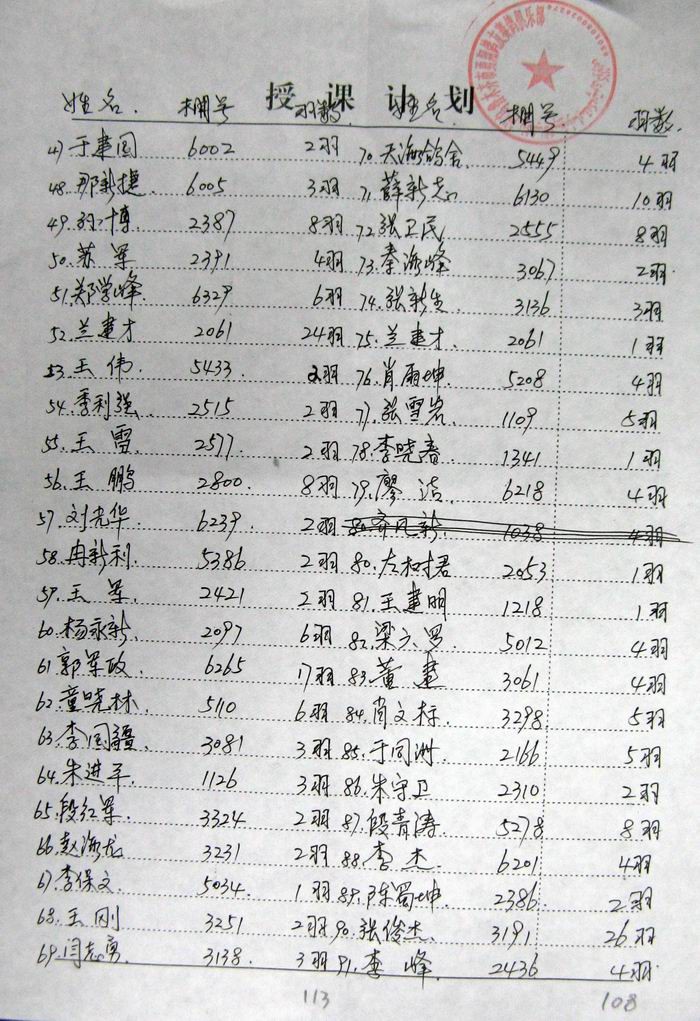 授课计划
姓名. 棚号 羽数 姓名. 棚号 羽数.
47 于建国 6002 2羽 70. 天海鸽舍 5449 4羽
48. 那新捷 6005 3羽 71. 薛新志 6130 10羽
49. 孙博 2387 8羽 72. 张卫民 2555 8羽
50. 苏军 2391 4羽 73. 秦海峰 3067 2羽
51. 郑学峰 6329 6羽 74. 张新生 3136 3羽
52. 兰建才 2061 24羽 75. 兰建才. 2061 1羽
53. 王伟 5433 2羽 76. 肖雨坤 5208 4羽
54. 季利强 2515 2羽 77. 张雪岩 1109 5羽
55. 王雪 2577 2羽 78. 李晓春. 1341 1羽
56. 王鹏 2800 8羽 79. 廖洁 6218 4羽
57. 刘光华 6239 2羽 80. 齐凡新 1038 4羽
58. 冉新利 5386 2羽 80. 左树君 2053 1羽
59. 王军 2421 2羽 81. 王建明 1218 1羽
60. 杨永新 2097 6羽 82. 梁六罗 5012 4羽
61 郭军政 6265 17羽 83. 董建 3061 4羽
62. 童晓林 5110 6羽 84. 肖文标. 3298 5羽
63. 李国疆 3081 3羽 85. 于同洲 2166 5羽
64. 朱进平 1126 3羽 86. 朱守卫 2310 2羽
65. 段红军 3324 2羽 87. 段青涛 5278 8羽
66. 赵海龙 3231 2羽 88. 李杰 6201 4羽
67. 李保文 5034 1羽 89. 陈蜀坤 2386 2羽
68. 王刚 3251 2羽 90. 张俊杰. 3191 26羽
69. 闫志勇 3138 3羽 91. 李峰 2436 4羽
113 108